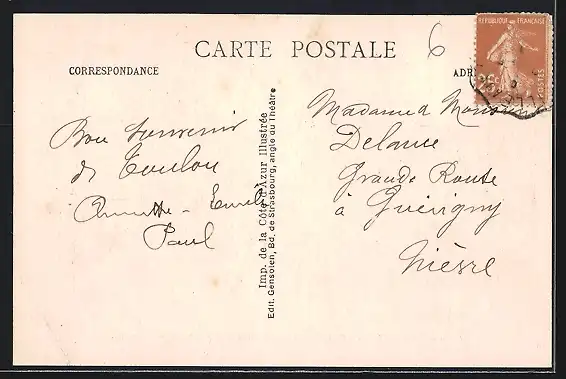 CARTE POSTALE
6
CORRESPONDANCE
ADR
REPUBLIQUE FRANÇAISE
25c
POSTES
Bon souvenir
de Toulon
Annette - Emile
Paul
Imp. de la Côte d'Azur Illustrée
Edit. Gensollen, Bd. de Strasbourg, angle du Théâtre
Madame & Monsieur
Delaune
Grande Route
à Guérigny
Nièvre